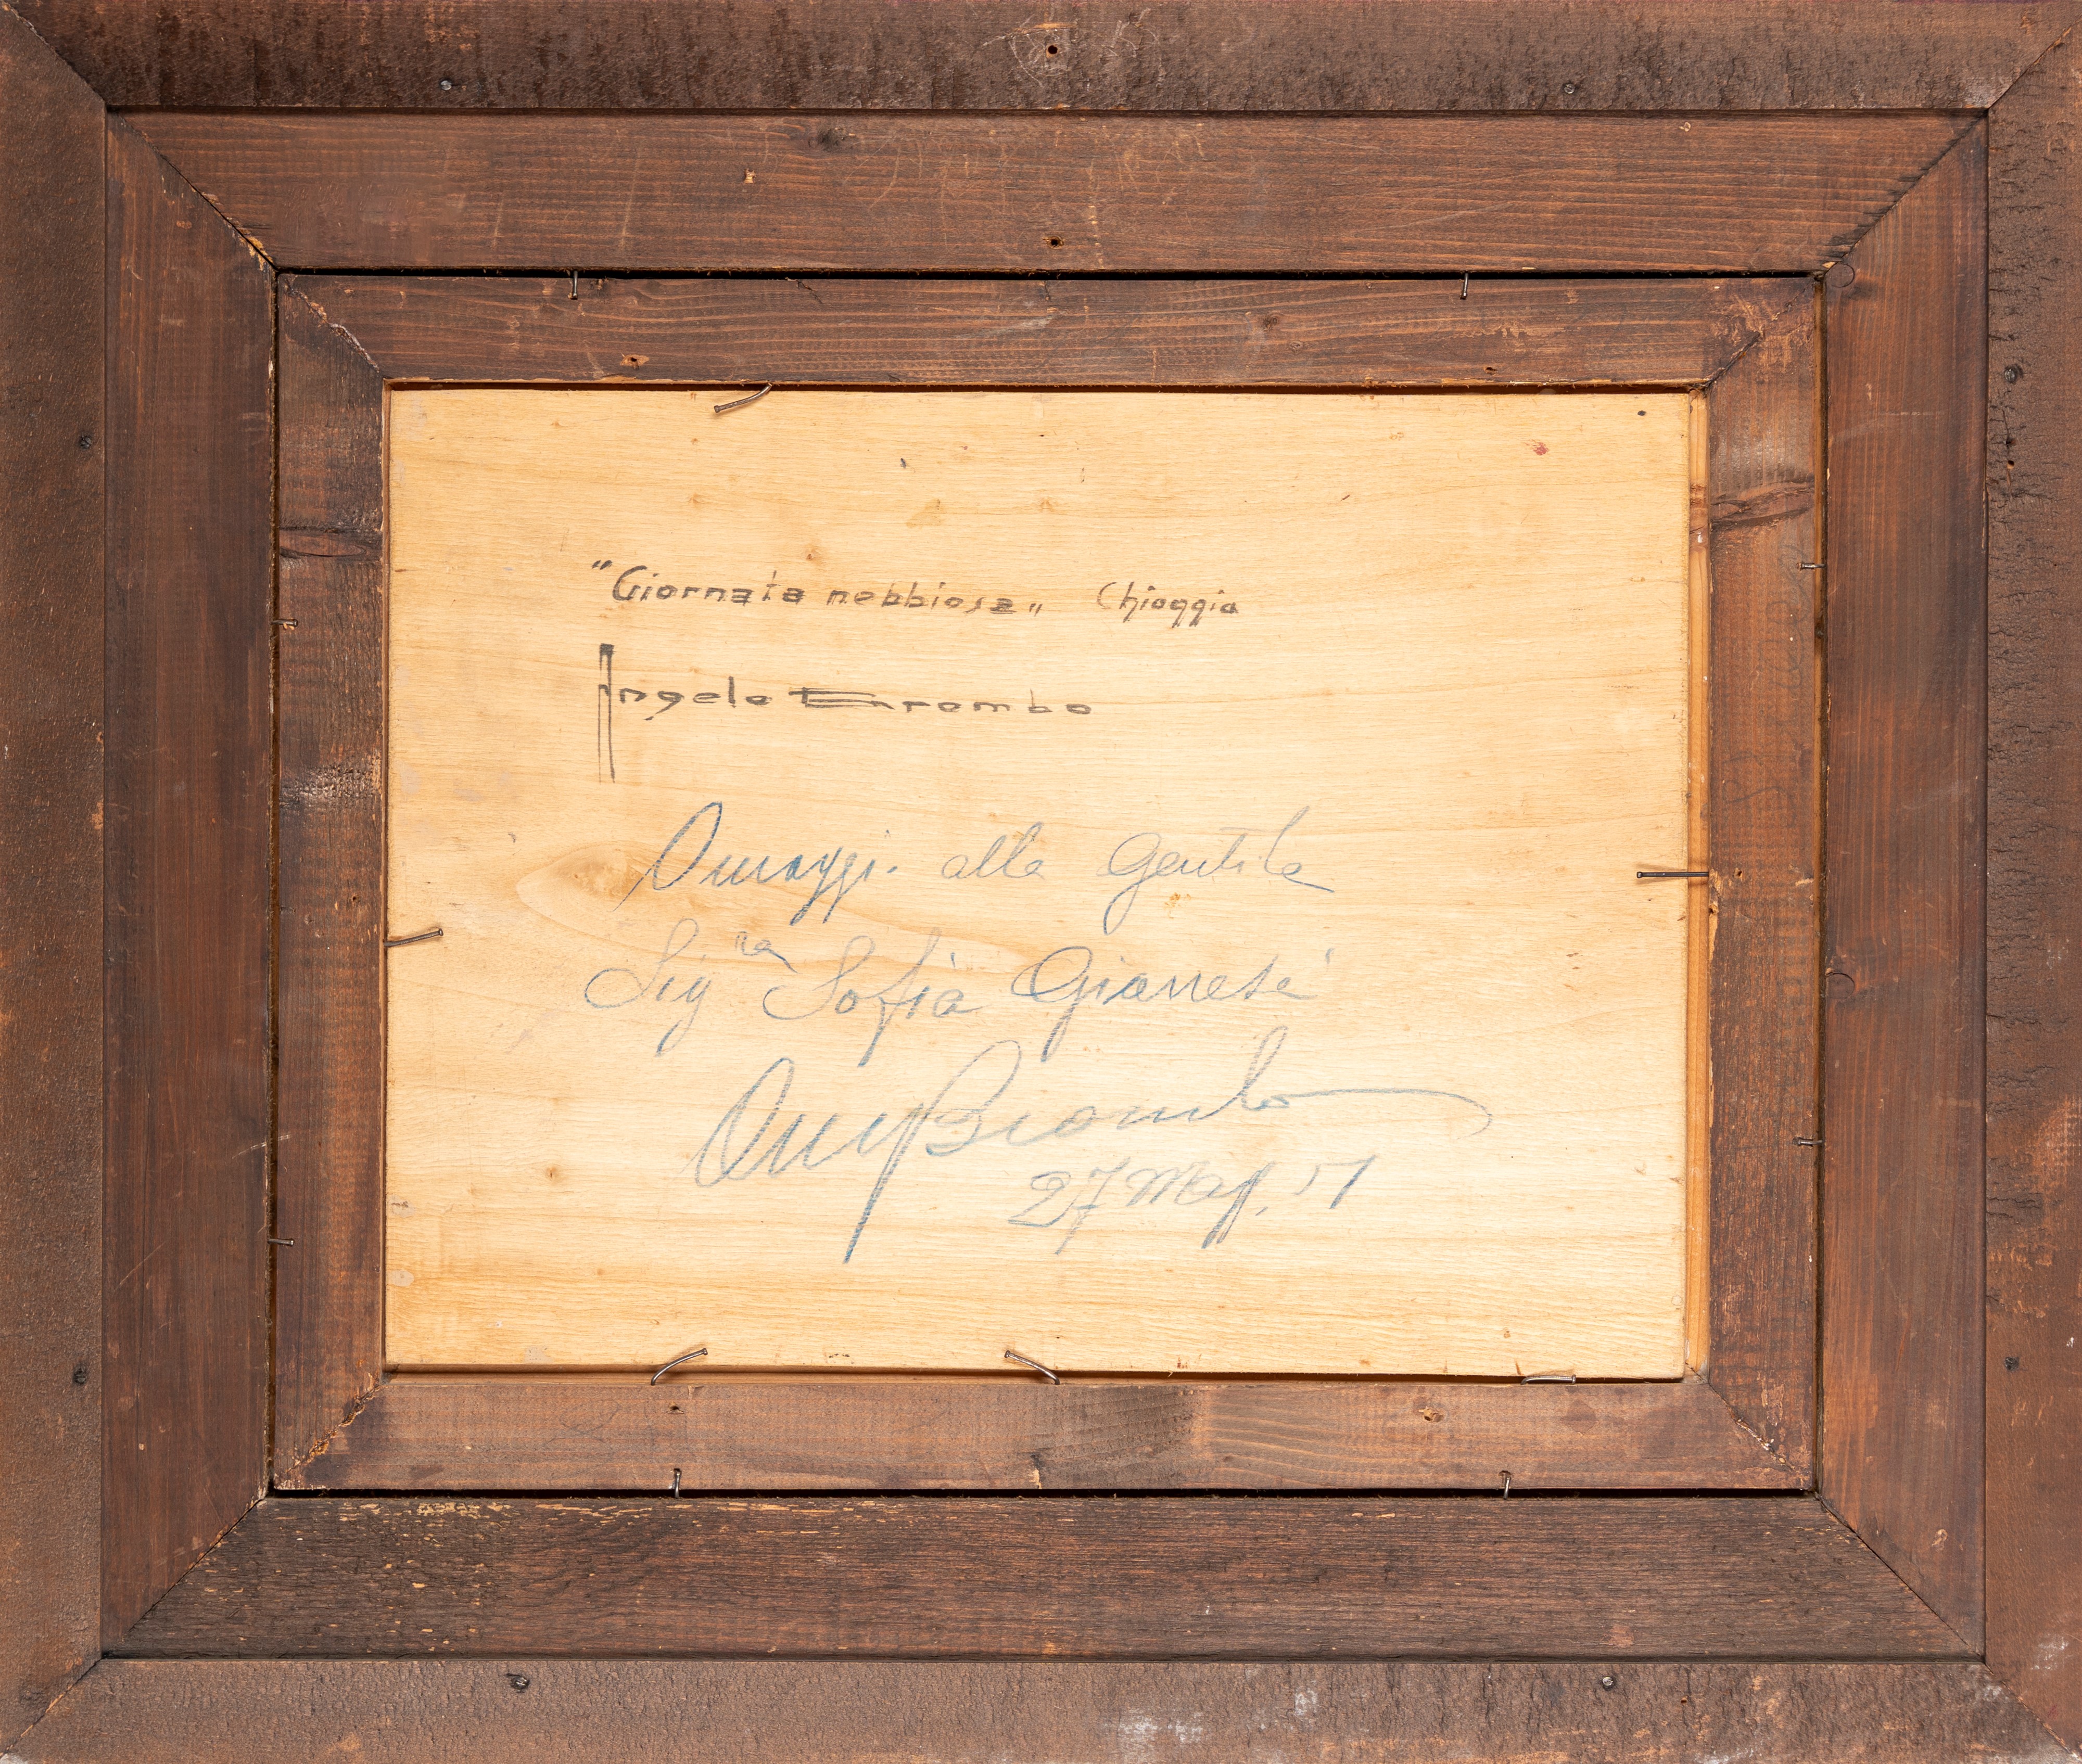 "Giornata nebbiosa" Chioggia
Angelo Brombo
Omaggi alla Gentile
Sig.ra Sofia
Ang Brombo
27 Mag. 51